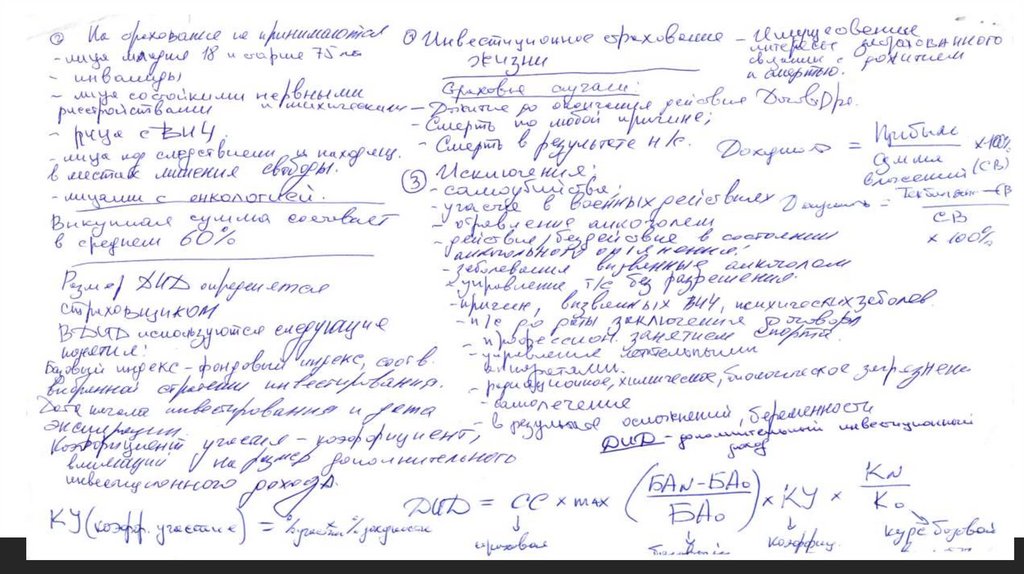 ② На страхование не принимаются
- лица младше 18 и старше 75 лет
- инвалиды
- лица со стойкими нервными
расстройствами и психическими
- лица с ВИЧ.
- лица под следствием и находящ.
в местах лишения свободы.
- лицами с онкологией.
Выкупная сумма составляет
в среднем 60%
Размер ДИД определяется
страховщиком
В ДИД используются следующие
понятия:
Базовый индекс - фондовый индекс, соотв.
выбранной стратегии инвестирования.
Дата начала инвестирования и дата
экспирации
Коэффициент участия - коэффициент,
влияющий на размер дополнительного
инвестиционного дохода.
КУ (коэфф. участия) = % участия % доходности
① Инвестиционное страхование
жизни
- Имущественные
интересы застрахованного
связаны с дожитием
и смертью.
Страховые случаи
- Дожитие до окончания действия Договора.
- Смерть по любой причине;
- Смерть в результате н/с.
Доходность = Прибыль × 100%
Сумма
вложений (СВ)
Доходность = - СВ
СВ
× 100%
③ Исключения
- самоубийства;
- участие в военных действиях
- отравление алкоголем
- действие/бездействие в состоянии
алкогольного опьянения;
- заболевания вызванные алкоголем
- управление т/с без разрешения.
- причин, вызванных ВИЧ, психических заболев.
- н/с до даты заключения Договора
- профессион. занятием спорта.
- управления летательными
аппаратами.
- радиационное, химическое, биологическое загрязнение
- самолечение
- в результате осложнений, беременности
ДИД - дополнительный инвестиционный
доход
ДИД = СС × max (БАN - БА0 / БА0) × КУ × КN / К0
страховая
коэффиц.
курс базовой